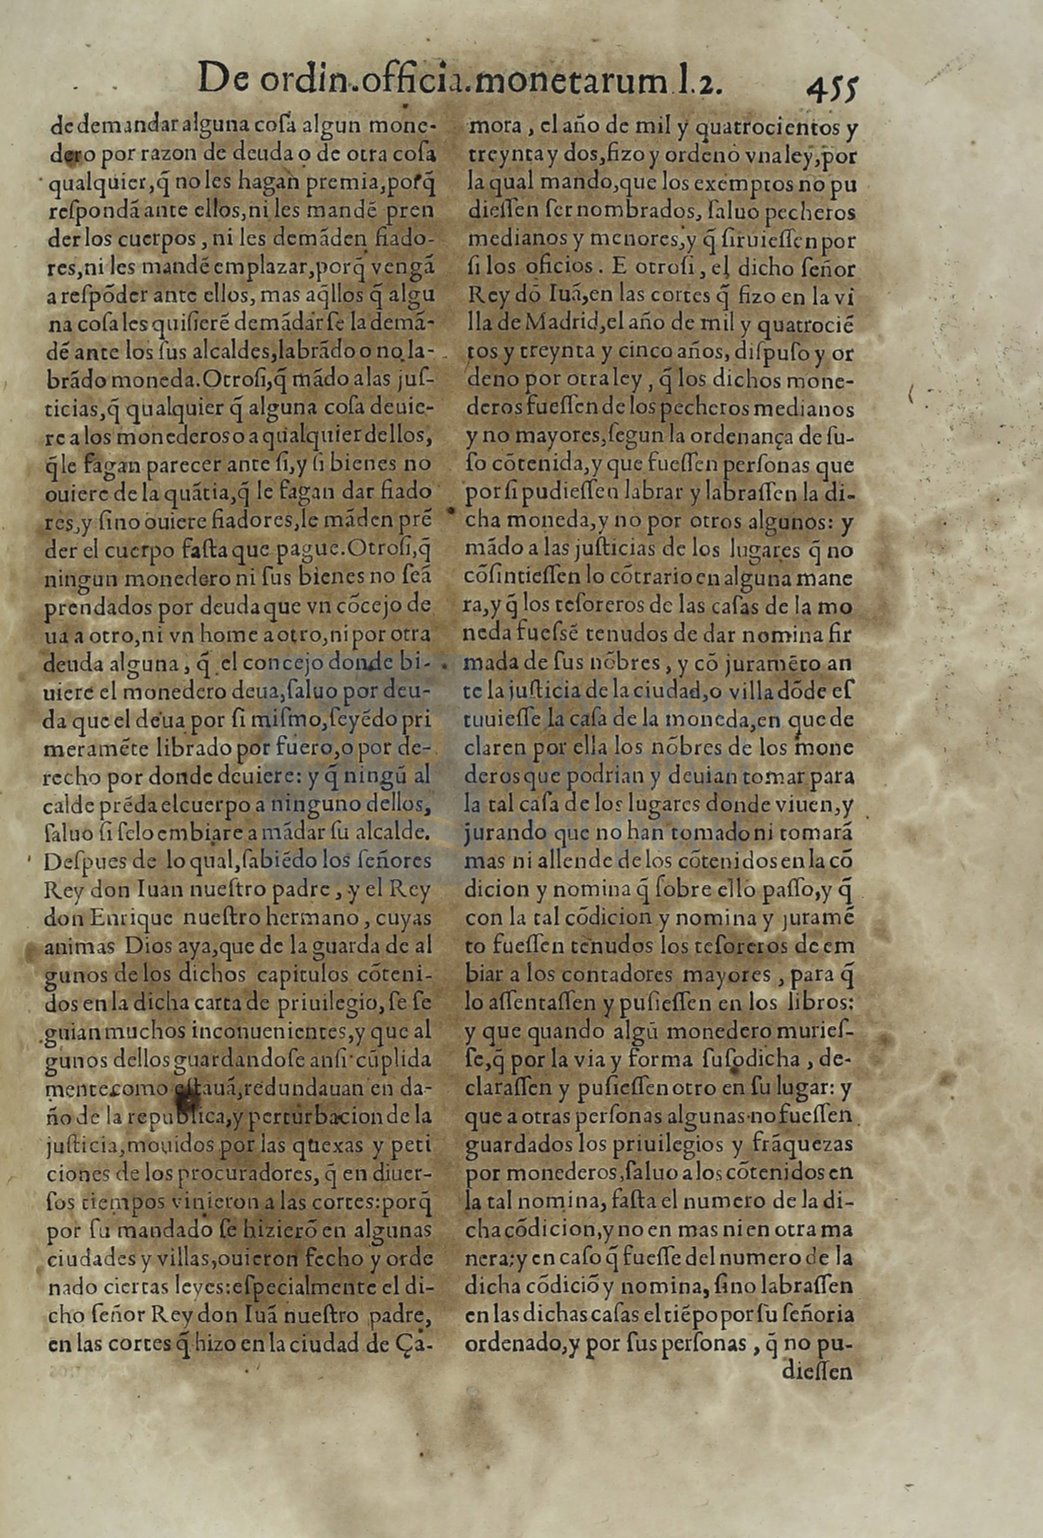 De ordin.officia.monetarum l.2. 455
de demandar alguna coſa algun mone-
dero por razon de deuda o de otra coſa
qualquier,q̃ no les hagan premia,porq̃
reſpondã ante ellos,ni les mandẽ pren
der los cuerpos , ni les demãden fiado-
res,ni les mandẽ emplazar,porq̃ vengã
a reſpõder ante ellos, mas aq̃llos q̃ algu
na coſa les quiſierẽ demãdar ſe la demã-
dẽ ante los ſus alcaldes,labrãdo o no la-
brãdo moneda.Otroſi,q̃ mãdo a las juſ-
ticias,q̃ qualquier q̃ alguna coſa deuie-
re a los monederos o a qualquier dellos,
q̃ le fagan parecer ante ſi,y ſi bienes no
ouiere de la quãtia,q̃ le fagan dar fiado
res,y ſino ouiere fiadores,le mãden prẽ
der el cuerpo faſta que pague.Otroſi,q̃
ningun monedero ni ſus bienes no ſeã
prendados por deuda que vn cõcejo de
ua a otro,ni vn home a otro,ni por otra
deuda alguna , q̃ el concejo donde bi-
uiere el monedero deua,ſaluo por deu-
da que el deua por ſi miſmo,ſeyẽdo pri
meramẽte librado por fuero,o por de-
recho por donde deuiere: y q̃ ningũ al
calde prẽda el cuerpo a ninguno dellos,
ſaluo ſi ſelo embiare a mãdar ſu alcalde.
Deſpues de lo qual,ſabiẽdo los ſeñores
Rey don Iuan nueſtro padre , y el Rey
don Enrique nueſtro hermano , cuyas
animas Dios aya,que de la guarda de al
gunos de los dichos capitulos cõteni-
dos en la dicha carta de priuilegio, ſe ſe
guian muchos inconuenientes,y que al
gunos dellos guardandoſe anſi cũplida
mente como eſtauã,redundauan en da-
ño de la republica,y perturbacion de la
juſticia,mouidos por las quexas y peti
ciones de los procuradores, q̃ en diuer-
ſos tiempos vinieron a las cortes:porq̃
por ſu mandado ſe hizierõ en algunas
ciudades y villas,ouieron fecho y orde
nado ciertas leyes:eſpecialmente el di-
cho ſeñor Rey don Iuã nueſtro padre,
en las cortes q̃ hizo en la ciudad de Ça-
mora , el año de mil y quatrocientos y
treynta y dos,fizo y ordeno vna ley,por
la qual mando,que los exemptos no pu
dieſſen ſer nombrados, ſaluo pecheros
medianos y menores,y q̃ ſiruieſſen por
ſi los oficios . E otroſi , el dicho ſeñor
Rey dõ Iuã,en las cortes q̃ fizo en la vi
lla de Madrid,el año de mil y quatrociẽ
tos y treynta y cinco años, diſpuſo y or
deno por otra ley , q̃ los dichos mone-
deros fueſſen de los pecheros medianos
y no mayores,ſegun la ordenança de ſu-
ſo cõtenida,y que fueſſen perſonas que
por ſi pudieſſen labrar y labraſſen la di-
cha moneda,y no por otros algunos: y
mãdo a las juſticias de los lugares q̃ no
cõſintieſſen lo cõtrario en alguna mane
ra,y q̃ los teſoreros de las caſas de la mo
neda fueſsẽ tenudos de dar nomina fir
mada de ſus nõbres , y cõ juramẽto an
te la juſticia de la ciudad,o villa dõde eſ
tuuieſſe la caſa de la moneda,en que de
claren por ella los nõbres de los mone
deros que podrian y deuian tomar para
la tal caſa de los lugares donde viuen,y
jurando que no han tomado ni tomarã
mas ni allende de los cõtenidos en la cõ
dicion y nomina q̃ ſobre ello paſſo,y q̃
con la tal cõdicion y nomina y juramẽ
to fueſſen tenudos los teſoreros de em
biar a los contadores mayores , para q̃
lo aſſentaſſen y puſieſſen en los libros:
y que quando algũ monedero murieſ-
ſe,q̃ por la via y forma ſuſodicha , de-
claraſſen y puſieſſen otro en ſu lugar: y
que a otras perſonas algunas no fueſſen
guardados los priuilegios y frãquezas
por monederos,ſaluo a los cõtenidos en
la tal nomina, faſta el numero de la di-
cha cõdicion,y no en mas ni en otra ma
nera:y en caſo q̃ fueſſe del numero de la
dicha cõdiciõ y nomina, ſino labraſſen
en las dichas caſas el tiẽpo por ſu ſeñoria
ordenado,y por ſus perſonas , q̃ no pu-
dieſſen